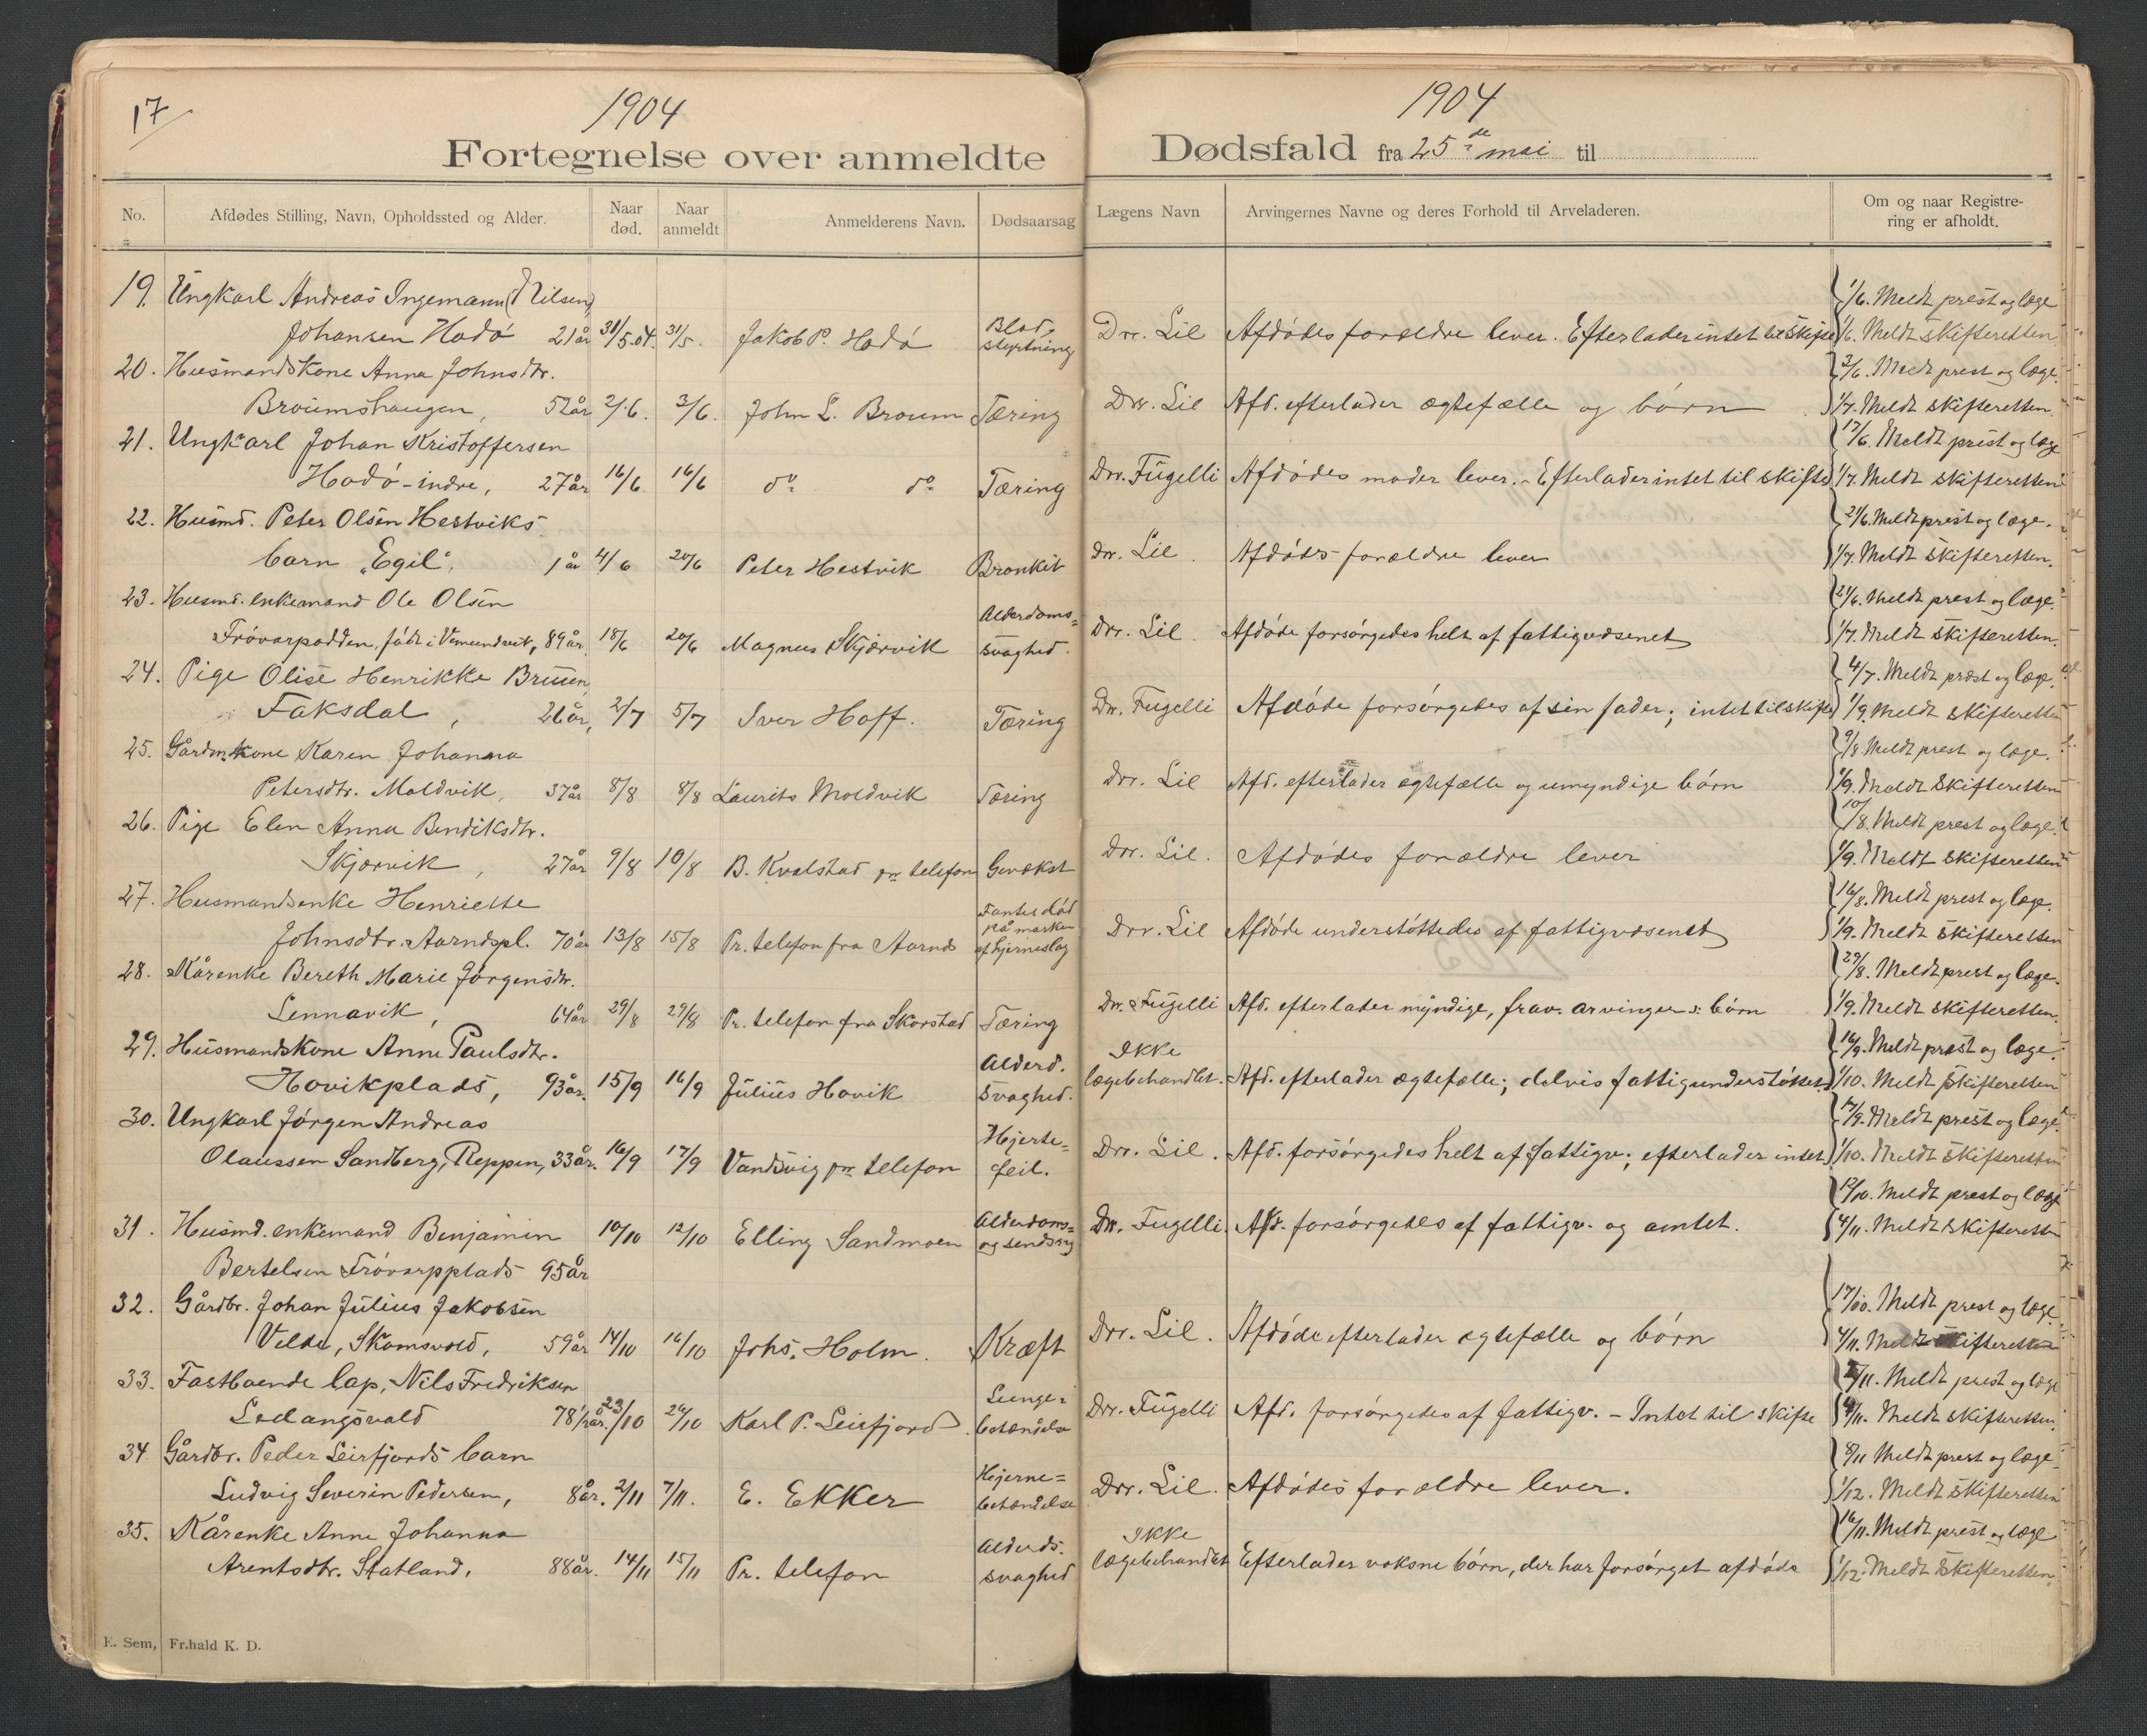 17
1904
Fortegnelse over anmeldte
No.
Afdødes Stilling, Navn, Opholdssted og Alder.
Naar død.
Naar anmeldt
Anmelderens Navn.
Dødsaarsag
19. Ungkarl Andreas Ingemann (Nilsen)
Johansen Hodø 21 år 31/5.04. 31/5. Jakob P. Hodø Blodstyrtning
20. Husmandskone Anna Johnsdtr.
Broumshaugen, 52 år 2/6. 3/6. John L. Broum Tæring
21. Ungkarl Johan Kristoffersen
Hodø-indre, 27 år 16/6 16/6 do do Tæring
22. Husmd. Peter Olsen Hestviks
barn "Egil". 1 år 4/6 20/6 Peter Hestvik Bronkit
23. Husmd. enkemand Ole Olsen
Frøvarpodden, født i Vemundvik, 89 år. 18/6 20/6 Magnus Skjærvik Alderdoms=svaghed.
24. Pige Olise Henrikke Bruun,
Faksdal, 26 år, 2/7 5/7 Iver Hoff. Tæring
25. Gårdm.kone Karen Johanna
Petersdtr. Moldvik, 37 år 8/8 8/8 Laurits Moldvik Tæring
26. Pige Elen Anna Bendiksdtr.
Skjærvik, 27 år 9/8 10/8 B. Kvalstad pr telefon Gevækst
27. Husmandsenke Henriette
Johnsdtr. Aarndspl. 70 år 13/8 15/8 Pr. telefon fra Aarnds Fantes død på marken af hjerneslag
28. Kårenke Bereth Marie Jørgensdtr.
Lennavik, 64 år 29/8 29/8 Pr. telefon fra Skorstad Tæring
29. Husmandskone Anne Paulsdtr.
Hovikplads, 93 år. 15/9 16/9 Julius Hovik Alderd. svaghed.
30. Ungkarl Jørgen Andreas
Olaussen Sandberg, Reppen, 33 år. 16/9 17/9 Vandsvig pr telefon Hjerte=feil.
31. Husmd. enkemand Benjamin 10/10 12/10 Elling Sandmoen Alderdoms=
Bertelsen Frøvarpplads 95 år
32. Gårdbr. Johan Julius Jakobsen
Velde, Skomsvold, 59 år 14/10 16/10 Johs. Holm. Kræft
33. Fastboende lap, Nils Fredriksen
78 1/2 år. 23/10 26/10 Karl P. Leirfjord Lunge=betændelse
34 Gårdbr. Peder Leirfjords barn
Ludvig Severin Pedersen, 8 år. 2/11 7/11. E. Ekker Hjerne=betændelse
35. Kårenke Anne Johanna
Arentsdtr. Statland, 88 år. 14/11 15/11 Pr. telefon Alderds. svaghed
E. Sem, Fr.hald K. D.
1904
Dødsfald fra 25de mai til
Lægens Navn
Arvingernes Navne og deres Forhold til Arveladeren.
Om og naar Registrering er afholdt.
1/6. Meldt prest og læge
Dr. Lil Afdødes forældre lever. Efterlader intet til skifte 1/6. Meldt skifteretten
3/6. Meldt prest og læge.
Dr. Lil Afd. efterlader ægtefælle og børn 1/7. Meldt skifteretten.
17/6. Meldt prest og læge
Dr. Fugelli Afdødes moder lever. - Efterlader intet til skifte 1/7. Meldt skifteretten
21/6. Meldt prest og læge.
Dr. Lil. Afdødes forældre lever 1/7. Meldt skifteretten.
21/6. Meldt prest og læge.
Dr. Lil. Afdøde forsørgedes helt af fattigvæsenet 1/7. Meldt skifteretten.
4/7. Meldt præst og læge.
Dr. Fugelli Afdøde forsørgedes af sin fader; intet til skifte 1/9. Meldt skifteretten
9/8 Meldt prest og læge.
Dr. Lil Afd. efterlader ægtefælle og umyndige børn 1/9. Meldt skifteretten
10/8. Meldt prest og læge.
Dr. Lil. Afdødes forældre lever 1/9. Meldt skifteretten
16/8. Meldt prest og læge.
Dr. Lil Afdøde understøttedes af fattigvæsenet 1/9. Meldt skifteretten
29/8. Meldt prest og læge.
Dr. Fugelli Afd. efterlader myndige, frav. arvinger s: børn 1/9. Meldt skifteretten.
16/9. Meldt præst og læge.
Ikke lægebehandlet. Afd. efterlader ægtefælle; delvis fattigunderstøttet. 1/10. Meldt skifteretten
17/9. Meldt prest og læge.
Dr. Lil. Afd. forsørgedes helt af fattigv.; efterlader intet 1/10. Meldt skifteretten
12/10. Meldt prest og læge
Dr. Fugelli. Afd. forsørgedes af fattigv. og amtet. 4/11. Meldt skifteretten
17/10. Meldt prest og læge.
Dr. Lil. Afdøde efterlader ægtefælle og børn 4/11. Meldt skifteretten
Meldt prest og læge
Dr. Fugelli Afd. forsørgedes af fattigv. - Intet til skifte 4/11. Meldt skifteretten.
8/11 Meldt prest og læge.
Dr. Lil. Afdødes forældre lever. 1/12. Meldt skifteretten
16/11. Meldt prest og læge
Ikke lægebehandlet Efterlader voksne børn, der har forsørget afdøde 1/12. Meldt skifteretten.